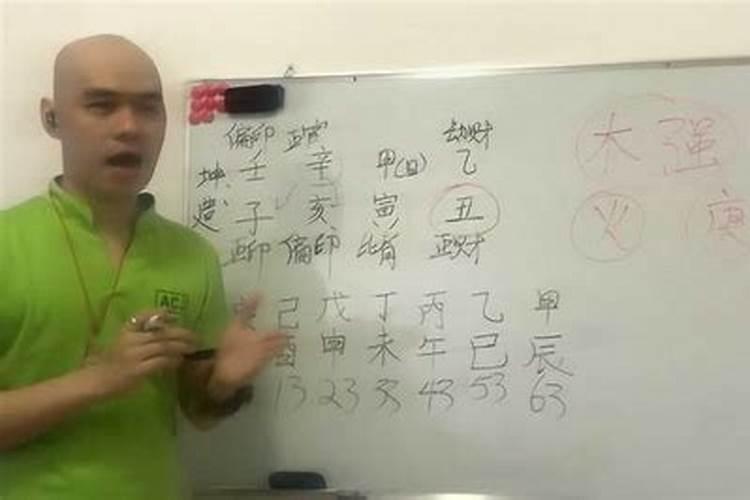 偏印 正官 劫财
坤 壬 辛 甲(日) 乙 木 强
造: 子 亥 寅 丑 火 庚
正印 偏印 比肩 正财
己 戊 丁 丙 乙 甲
酉 申 未 午 巳 辰
13 23 33 43 53 63